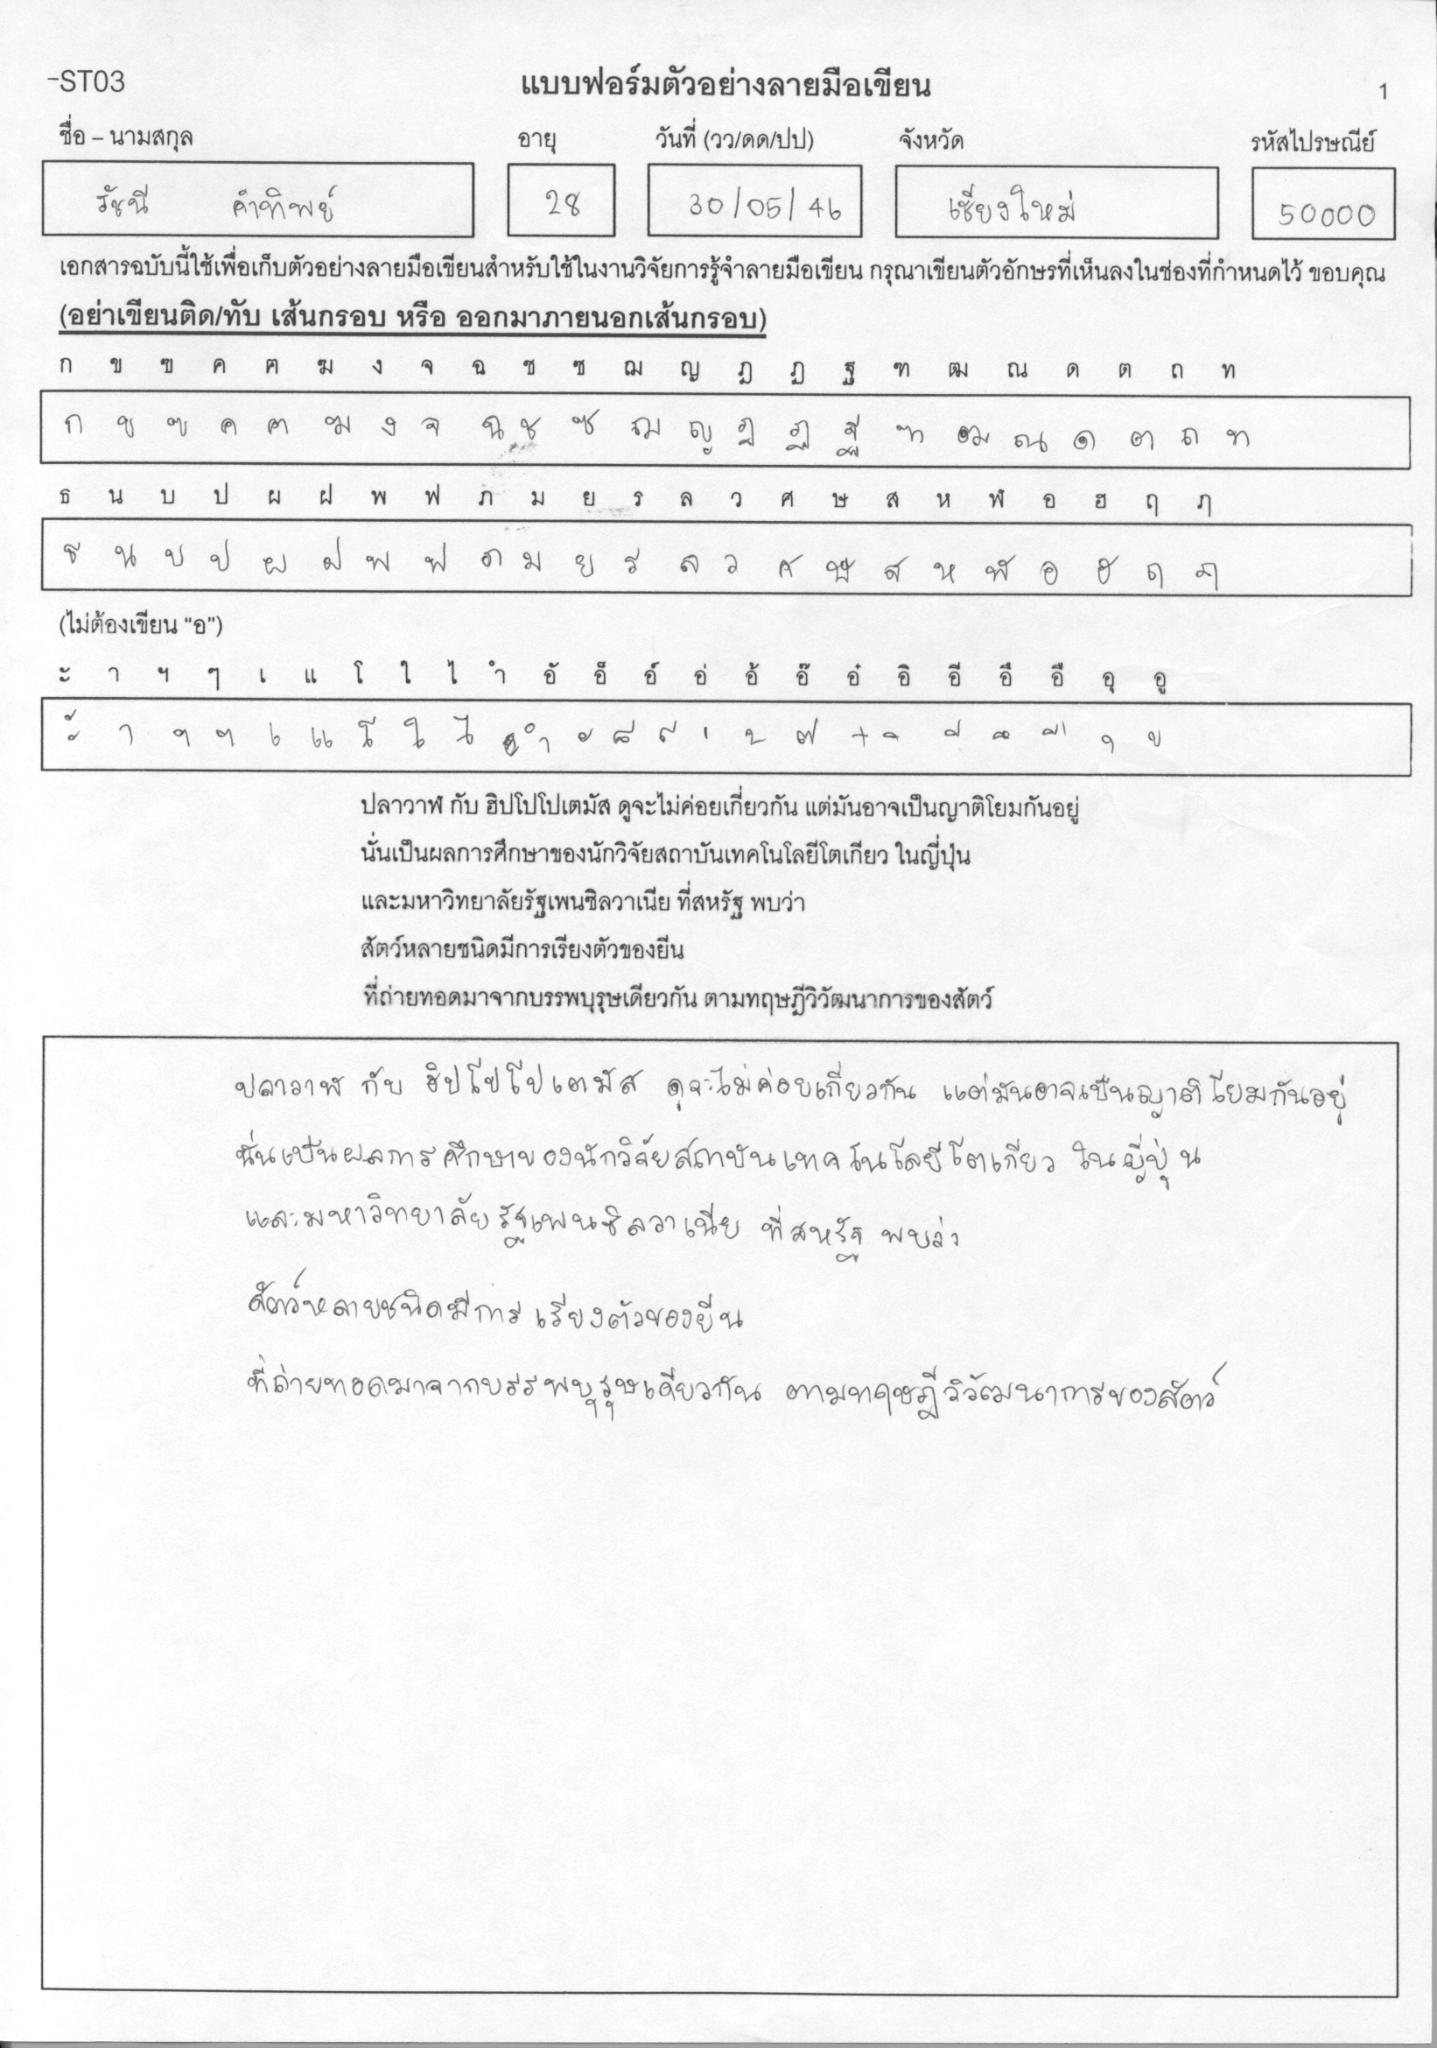 -ST03 แบบฟอร์มตัวอย่างลายมือเขียน 1
ชื่อ – นามสกุล อายุ วันที่ (วว/ดด/ปป) จังหวัด รหัสไปรษณีย์
รัชนี คำทิพย์ 28 30/05/46 เชียงใหม่ 50000
เอกสารฉบับนี้ใช้เพื่อเก็บตัวอย่างลายมือเขียนสำหรับใช้ในงานวิจัยการรู้จำลายมือเขียน กรุณาเขียนตัวอักษรที่เห็นลงในช่องที่กำหนดไว้ ขอบคุณ
(อย่าเขียนติด/ทับ เส้นกรอบ หรือ ออกมาภายนอกเส้นกรอบ)
ก ข ฃ ค ฅ ฆ ง จ ฉ ช ซ ฌ ญ ฎ ฏ ฐ ฑ ฒ ณ ด ต ถ ท
ก ข ฃ ค ฅ ฆ ง จ ฉ ช ซ ฌ ญ ฎ ฏ ฐ ฑ ฒ ณ ด ต ถ ท
ธ น บ ป ผ ฝ พ ฟ ภ ม ย ร ล ว ศ ษ ส ห ฬ อ ฮ ฤ ฦ
ธ น บ ป ผ ฝ พ ฟ ภ ม ย ร ล ว ศ ษ ส ห ฬ อ ฮ ฤ ฦ
(ไม่ต้องเขียน “อ”)
ะ า ฯ ๆ เ แ โ ใ ไ ำ อั อ็ อ์ อ่ อ้ อ๊ อ๋ อิ อี อึ อื อุ อู
ะ า ฯ ๆ เ แ โ ใ ไ ำ ั ็ ์ ่ ้ ๊ ๋ ิ ี ึ ื ุ ู
ปลาวาฬ กับ ฮิปโปโปเตมัส ดูจะไม่ค่อยเกี่ยวกัน แต่มันอาจเป็นญาติโยมกันอยู่
นั่นเป็นผลการศึกษาของนักวิจัยสถาบันเทคโนโลยีโตเกียว ในญี่ปุ่น
และมหาวิทยาลัยรัฐเพนซิลวาเนีย ที่สหรัฐ พบว่า
สัตว์หลายชนิดมีการเรียงตัวของยีน
ที่ถ่ายทอดมาจากบรรพบุรุษเดียวกัน ตามทฤษฎีวิวัฒนาการของสัตว์
ปลาวาฬ กับ ฮิปโปโปเตมัส ดูจะไม่ค่อยเกี่ยวกัน แต่มันอาจเป็นญาติโยมกันอยู่
นั่นเป็นผลการศึกษาของนักวิจัยสถาบันเทคโนโลยีโตเกียว ในญี่ปุ่น
และมหาวิทยาลัยรัฐเพนซิลวาเนีย ที่สหรัฐ พบว่า
สัตว์หลายชนิดมีการเรียงตัวของยีน
ที่ถ่ายทอดมาจากบรรพบุรุษเดียวกัน ตามทฤษฎีวิวัฒนาการของสัตว์